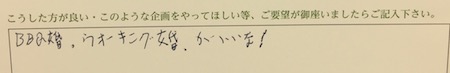 こうした方が良い・このような企画をやってほしい等、ご要望が御座いましたらご記入下さい。
BBQ婚、ウオーキング婚、がいいな!